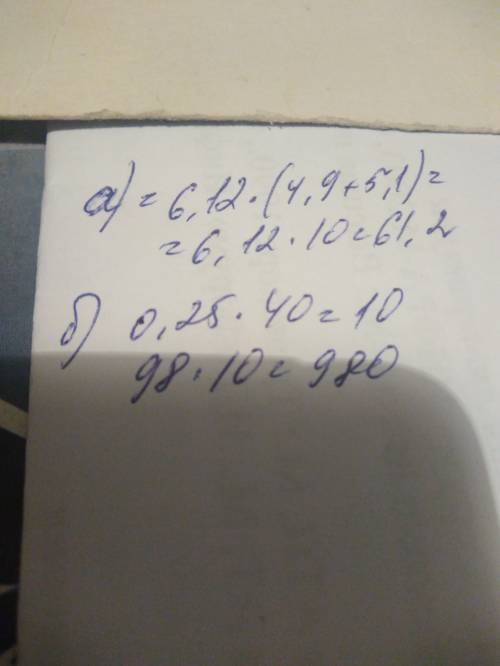 а) = 6,12 · (4,9+5,1) =
= 6,12 · 10 = 61,2
б) 0,25 · 40 = 10
98 · 10 = 980